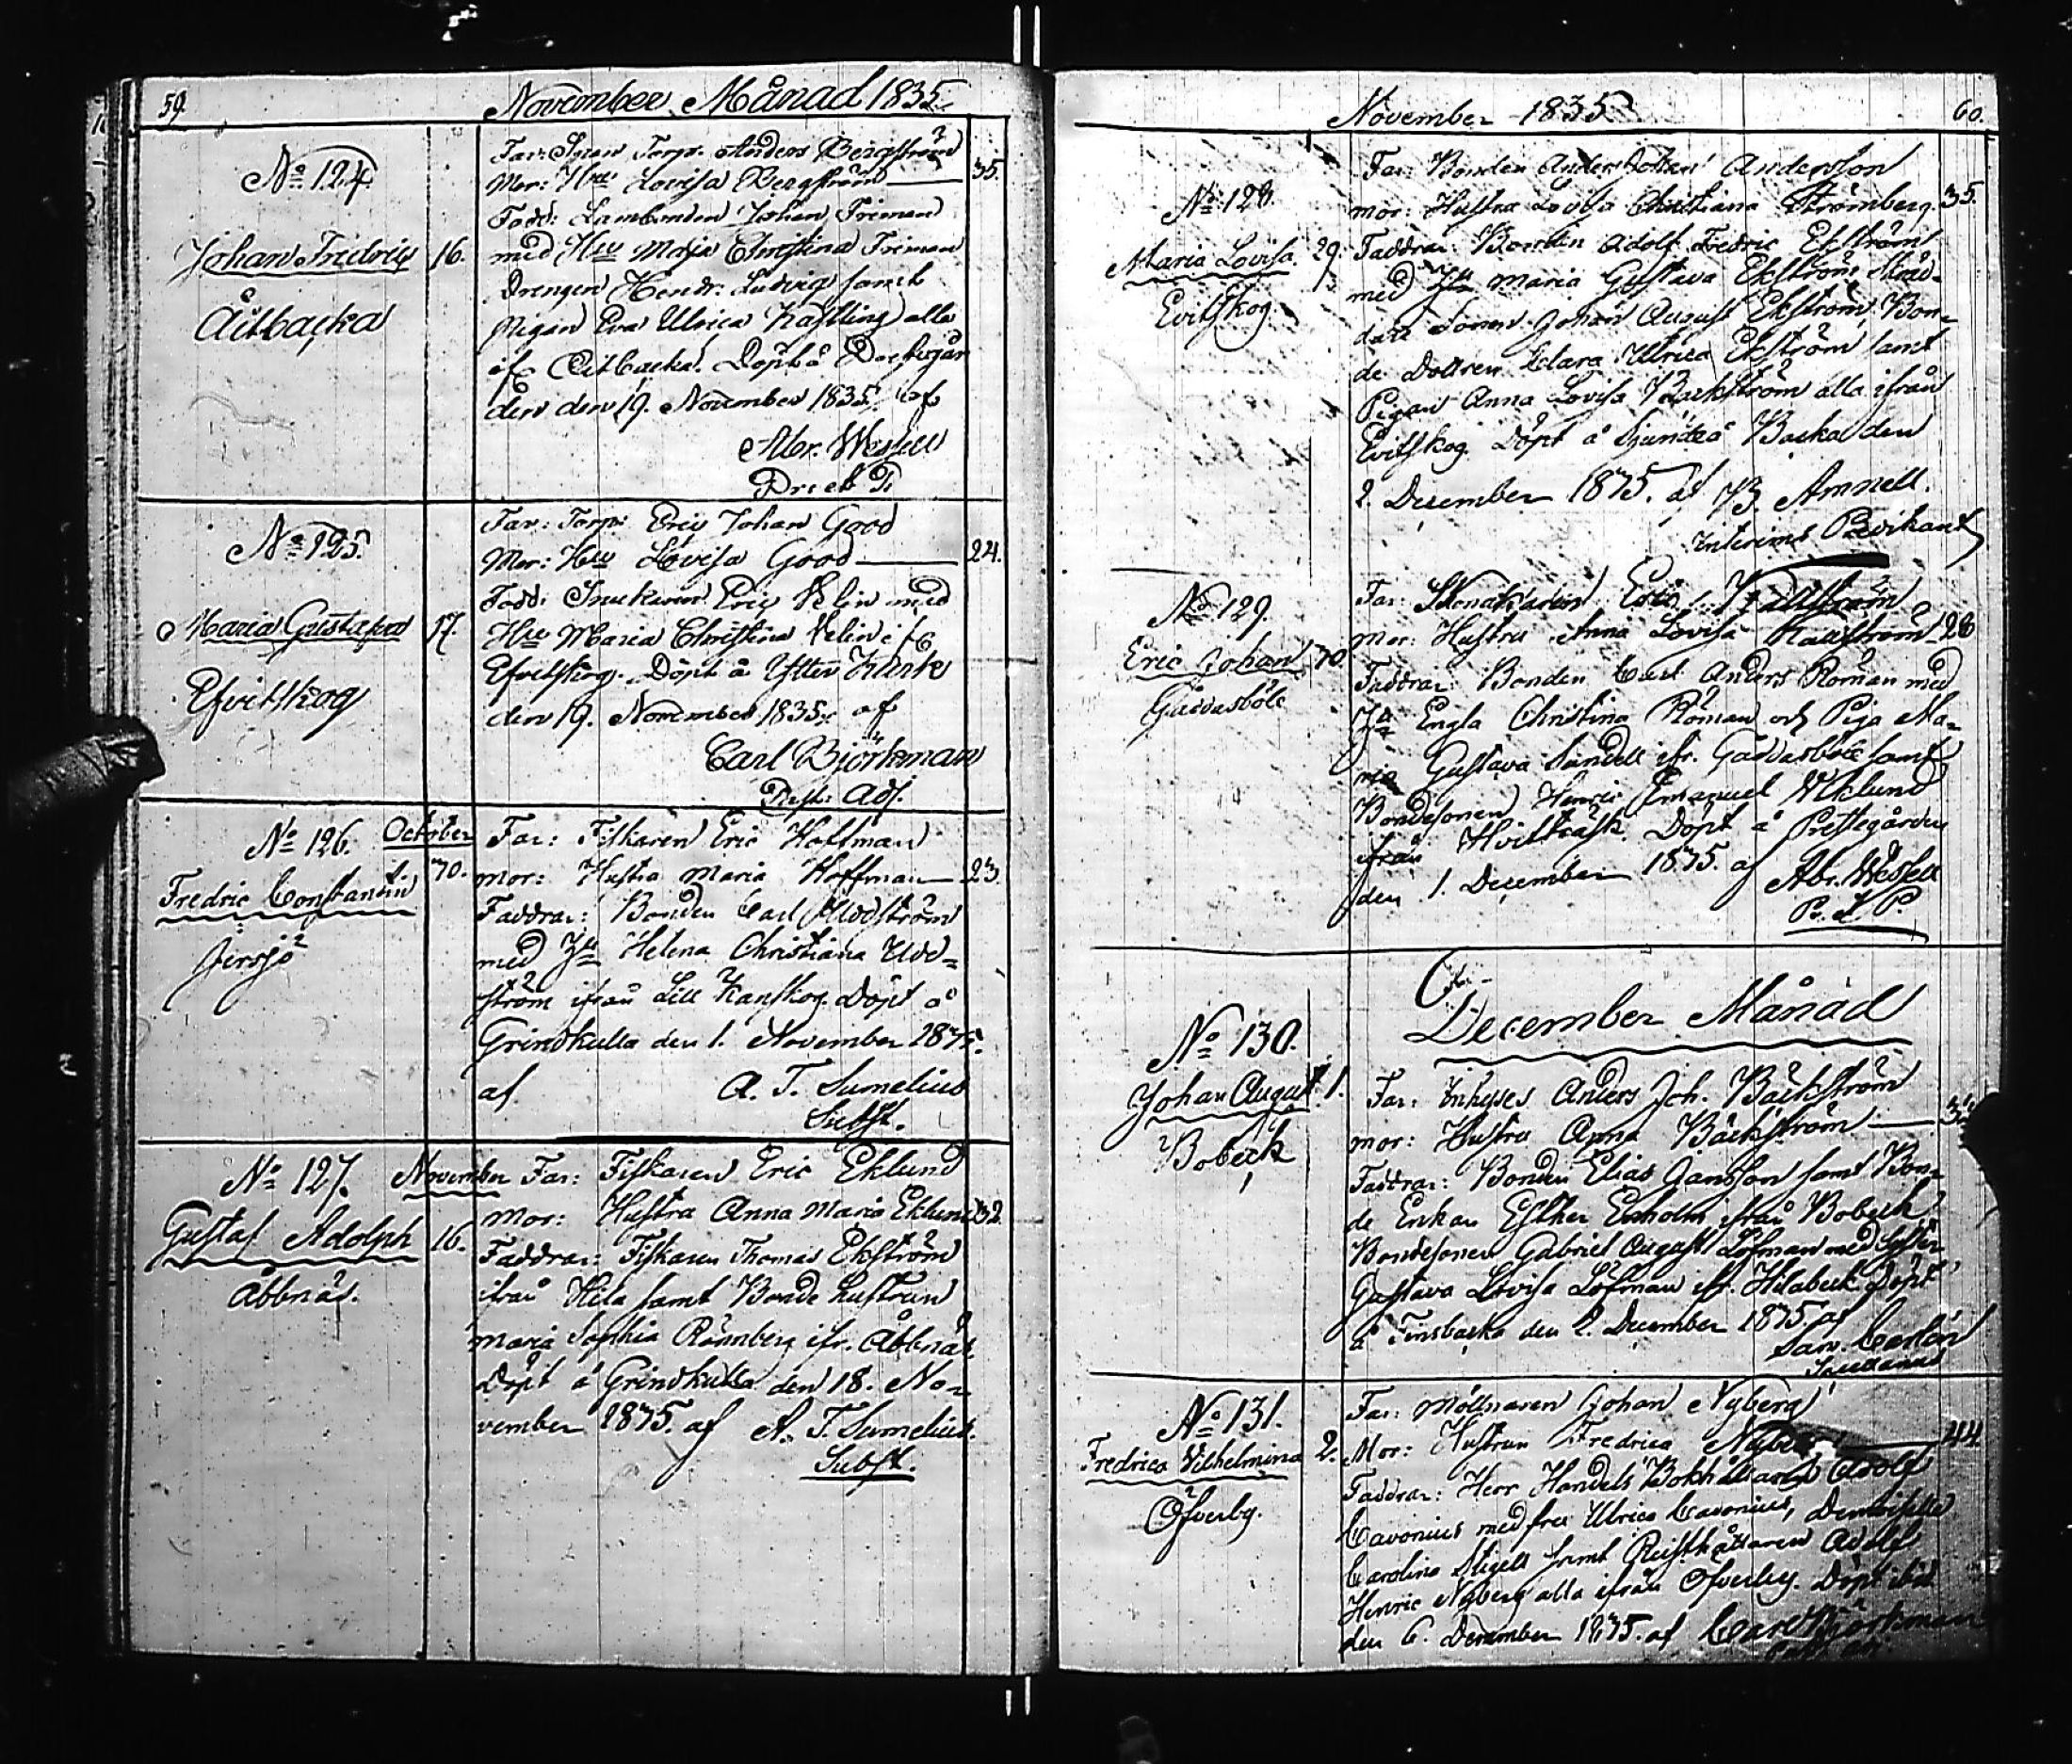 59.
November Månad 1835.
No 124
Johan Fredric
16.
Åitbacka
Far: Torp. Anders Bergström
Mor: Hru Lovisa Bergström — 35.
Fadd: Johan Friman
med Hru Maja Christina Friman
Drengen Hendr: Ludvig samt
Pigan Eva Ulrica alla
ifr. Åitbacka. Döpt å
den 19. November 1835, af
Abr. Wesell
No 125.
Maria Gustafva
17.
Efvitskog
Far: Torp: Eric Johan Good
Mor: Hru Lovisa Good — 24.
Fadd: Eric Velin med
Hru Maria Christina Velin ifr.
Efvitskog. Döpt å Ytter Kurk
den 19. November 1835. af
Carl Björkman
Past: Adj.
No 126.
October
Fredric Constantin
30.
Jirsjö
Far: Fiskaren Eric Hoffman
mor: Hustru Maria Hoffman — 23.
Faddrar: Bonden Carl Uddström
med Hu Helena Christiana Udd=
ström ifrån Lill Kanskog. Döpt å
Grindkulla den 1. November 1835.
af A. T. Sumelius
Subst.
No 127.
November
Gustaf Adolph
16.
Åbbnäs.
Far: Fiskaren Eric Eklund
Mor: Hustru Anna Maria Eklund 32.
Faddrar: Fiskaren Thomas Ekström
ifrån Hila samt Bonde hustrun
Maria Sophia Rännberg ifr. Åbbnäs.
Döpt å Grindkulla den 18. No=
vember 1835. af A. T. Sumelius.
Subst.
November 1835
60.
No 128.
Maria Lovisa.
29.
Evitskog.
Far: Bonden Anders Johan Andersson
mor: Hustru Lovisa Christiana Strömberg. 35.
Faddrar: Bonden Adolf Fredric Ekström
med Hu Maria Gustava Ekström,
Sonen Johan August Ekström, Bon=
de Dottren Clara Ulrica Ekström samt
Pigan Anna Lovisa Backström alla ifrån
Evitskog. Döpt å Sjundeå Backa den
2. December 1835. af B. Amnell.
Interims Predikant
No 129.
Eric Johan
30.
Gårdasböle
Far: Eric Källström
mor: Hustru Anna Lovisa Källström 28
Faddrar: Bonden Carl Anders Roman med
Hu Engla Christina Roman och Piga Ma=
ria Gustava Sundell ifr. Gårdasböle samt
Bondesonen Henric Emanuel Wiklund
ifrån Hvitträsk. Döpt å Prestegården
den 1. December 1835. af Abr. Wesell
P. L. P.
December Månad
No 130.
Johan August
1.
Bobeck
Far: Inhyses Anders Joh. Bäckström
mor: Hustru Anna Bäckström —
Faddrar: Bonden Elias Jansson samt Bon=
de Enkan Esther Enholm ifrån Bobeck
Bondesonen Gabriel August Löfman med Syster
Gustava Lovisa Löfman ifr. Hilabeck. Döpt
å Finsbacka den 2. December 1835. af
Carlén
No 131.
Fredrica Vilhelmina
2.
Öfverby.
Far: Möllnaren Johan Nyberg
Mor: Hustrun Fredrica Nyberg — 44
Faddrar: Herr Handels Bokhållaren Adolf
Cavonius med fru Ulrica Cavonius, Demoiselle
Carolina Stigell samt Rusthållaren Adolf
Henric Nyberg alla ifrån Öfverby. Döpt ibid
den 6. December 1835. af Carl Björkman